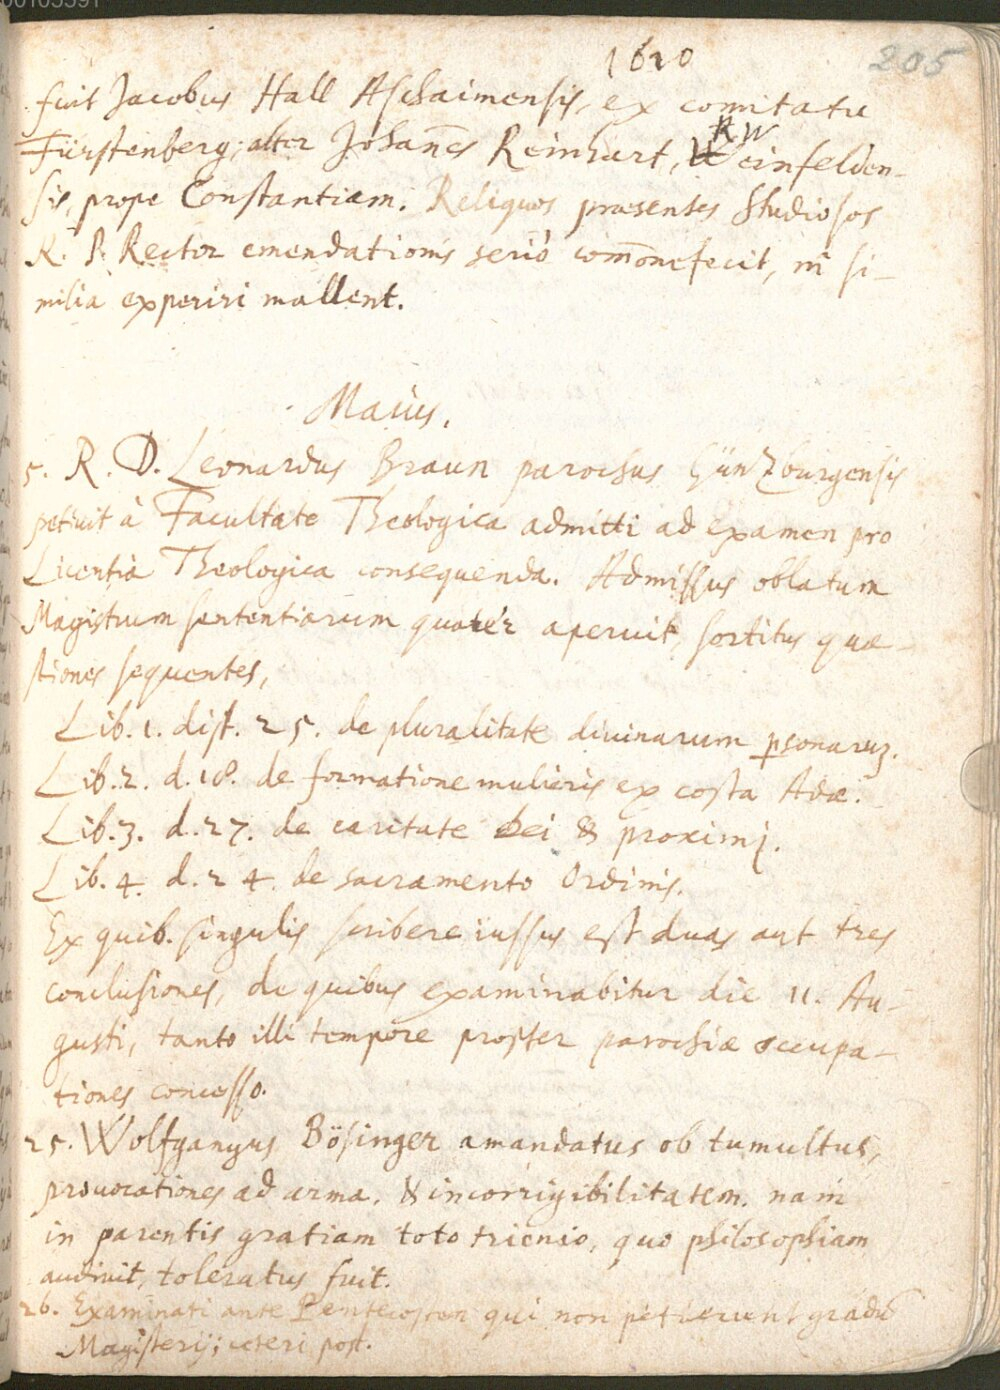 00105391
1620
205
fuit Jacobus Hall Aschaimensis, ex comitatu
Fürstenberg; alter Johan̄es Reinhart, Weinfelden-
RW
sis, prope Constantiam. Reliquos præsentes Studiosos
R. P. Rector emendationis seriò com̄onefecit, ni si-
milia experiri mallent.
Maius.
5. R. D. Leonardus Braun parochus Günzburgensis
petiuit à Facultate Theologica admitti ad examen pro
Licentia Theologica consequenda. Admissus oblatum
Magistrum sententiarum quater aperuit, sortitus quæ-
stiones sequentes,
Lib. 1. dist. 25. de pluralitate diuinarum p̱sonarꝫ.
Lib. 2. d. 18. de formatione mulieris ex costa Adæ.
Lib. 3. d. 27. de caritate Dei & proximi.
Lib. 4. d. 24. de sacramento Ordinis.
Ex quib. singulis scribere iussus est duas aut tres
conclusiones, de quibus examinabitur die 11. Au-
gusti, tanto illi tempore propter parochiæ occupa-
tiones concesso.
25. Wolfgangus Bösinger amandatus ob tumultus,
prouocationes ad arma, & incorrigibilitatem. nam
in parentis gratiam toto trien̄io, quo philosophiam
audiuit, toleratus fuit.
26. Examinati ante Pentecosten qui non petierunt gradū
Magisterij; ceteri post.